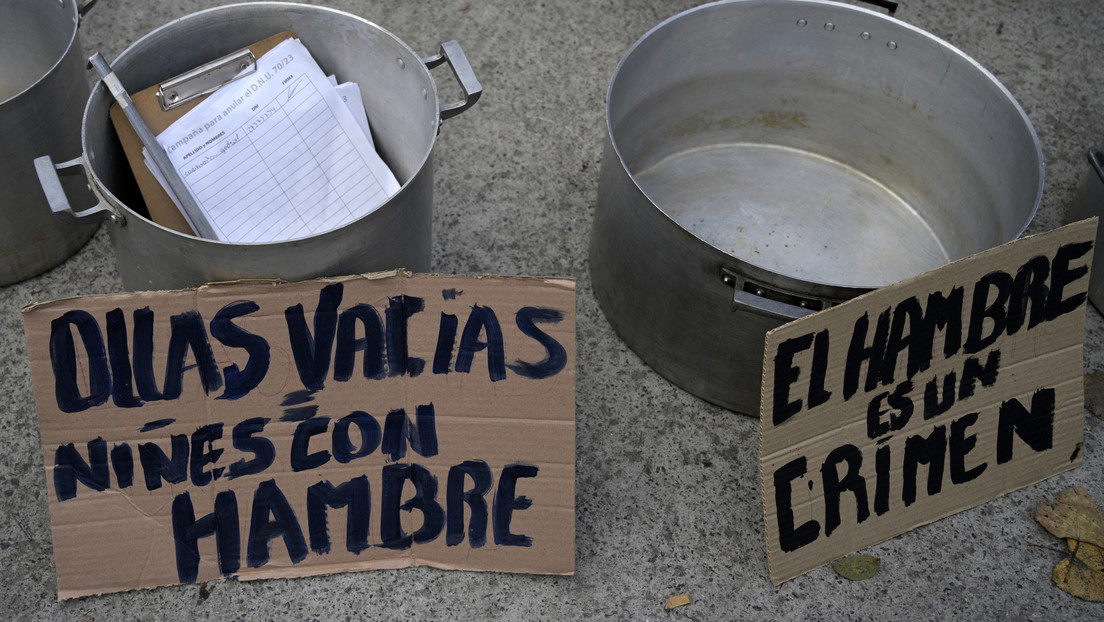 Campaña para anular el D.N.U. 70/23
APELLIDO y NOMBRES DNI FIRMA
OLLAS VACíAS
NIÑES CON
HAMBRE
EL HAMBRE
ES UN
CRIMEN